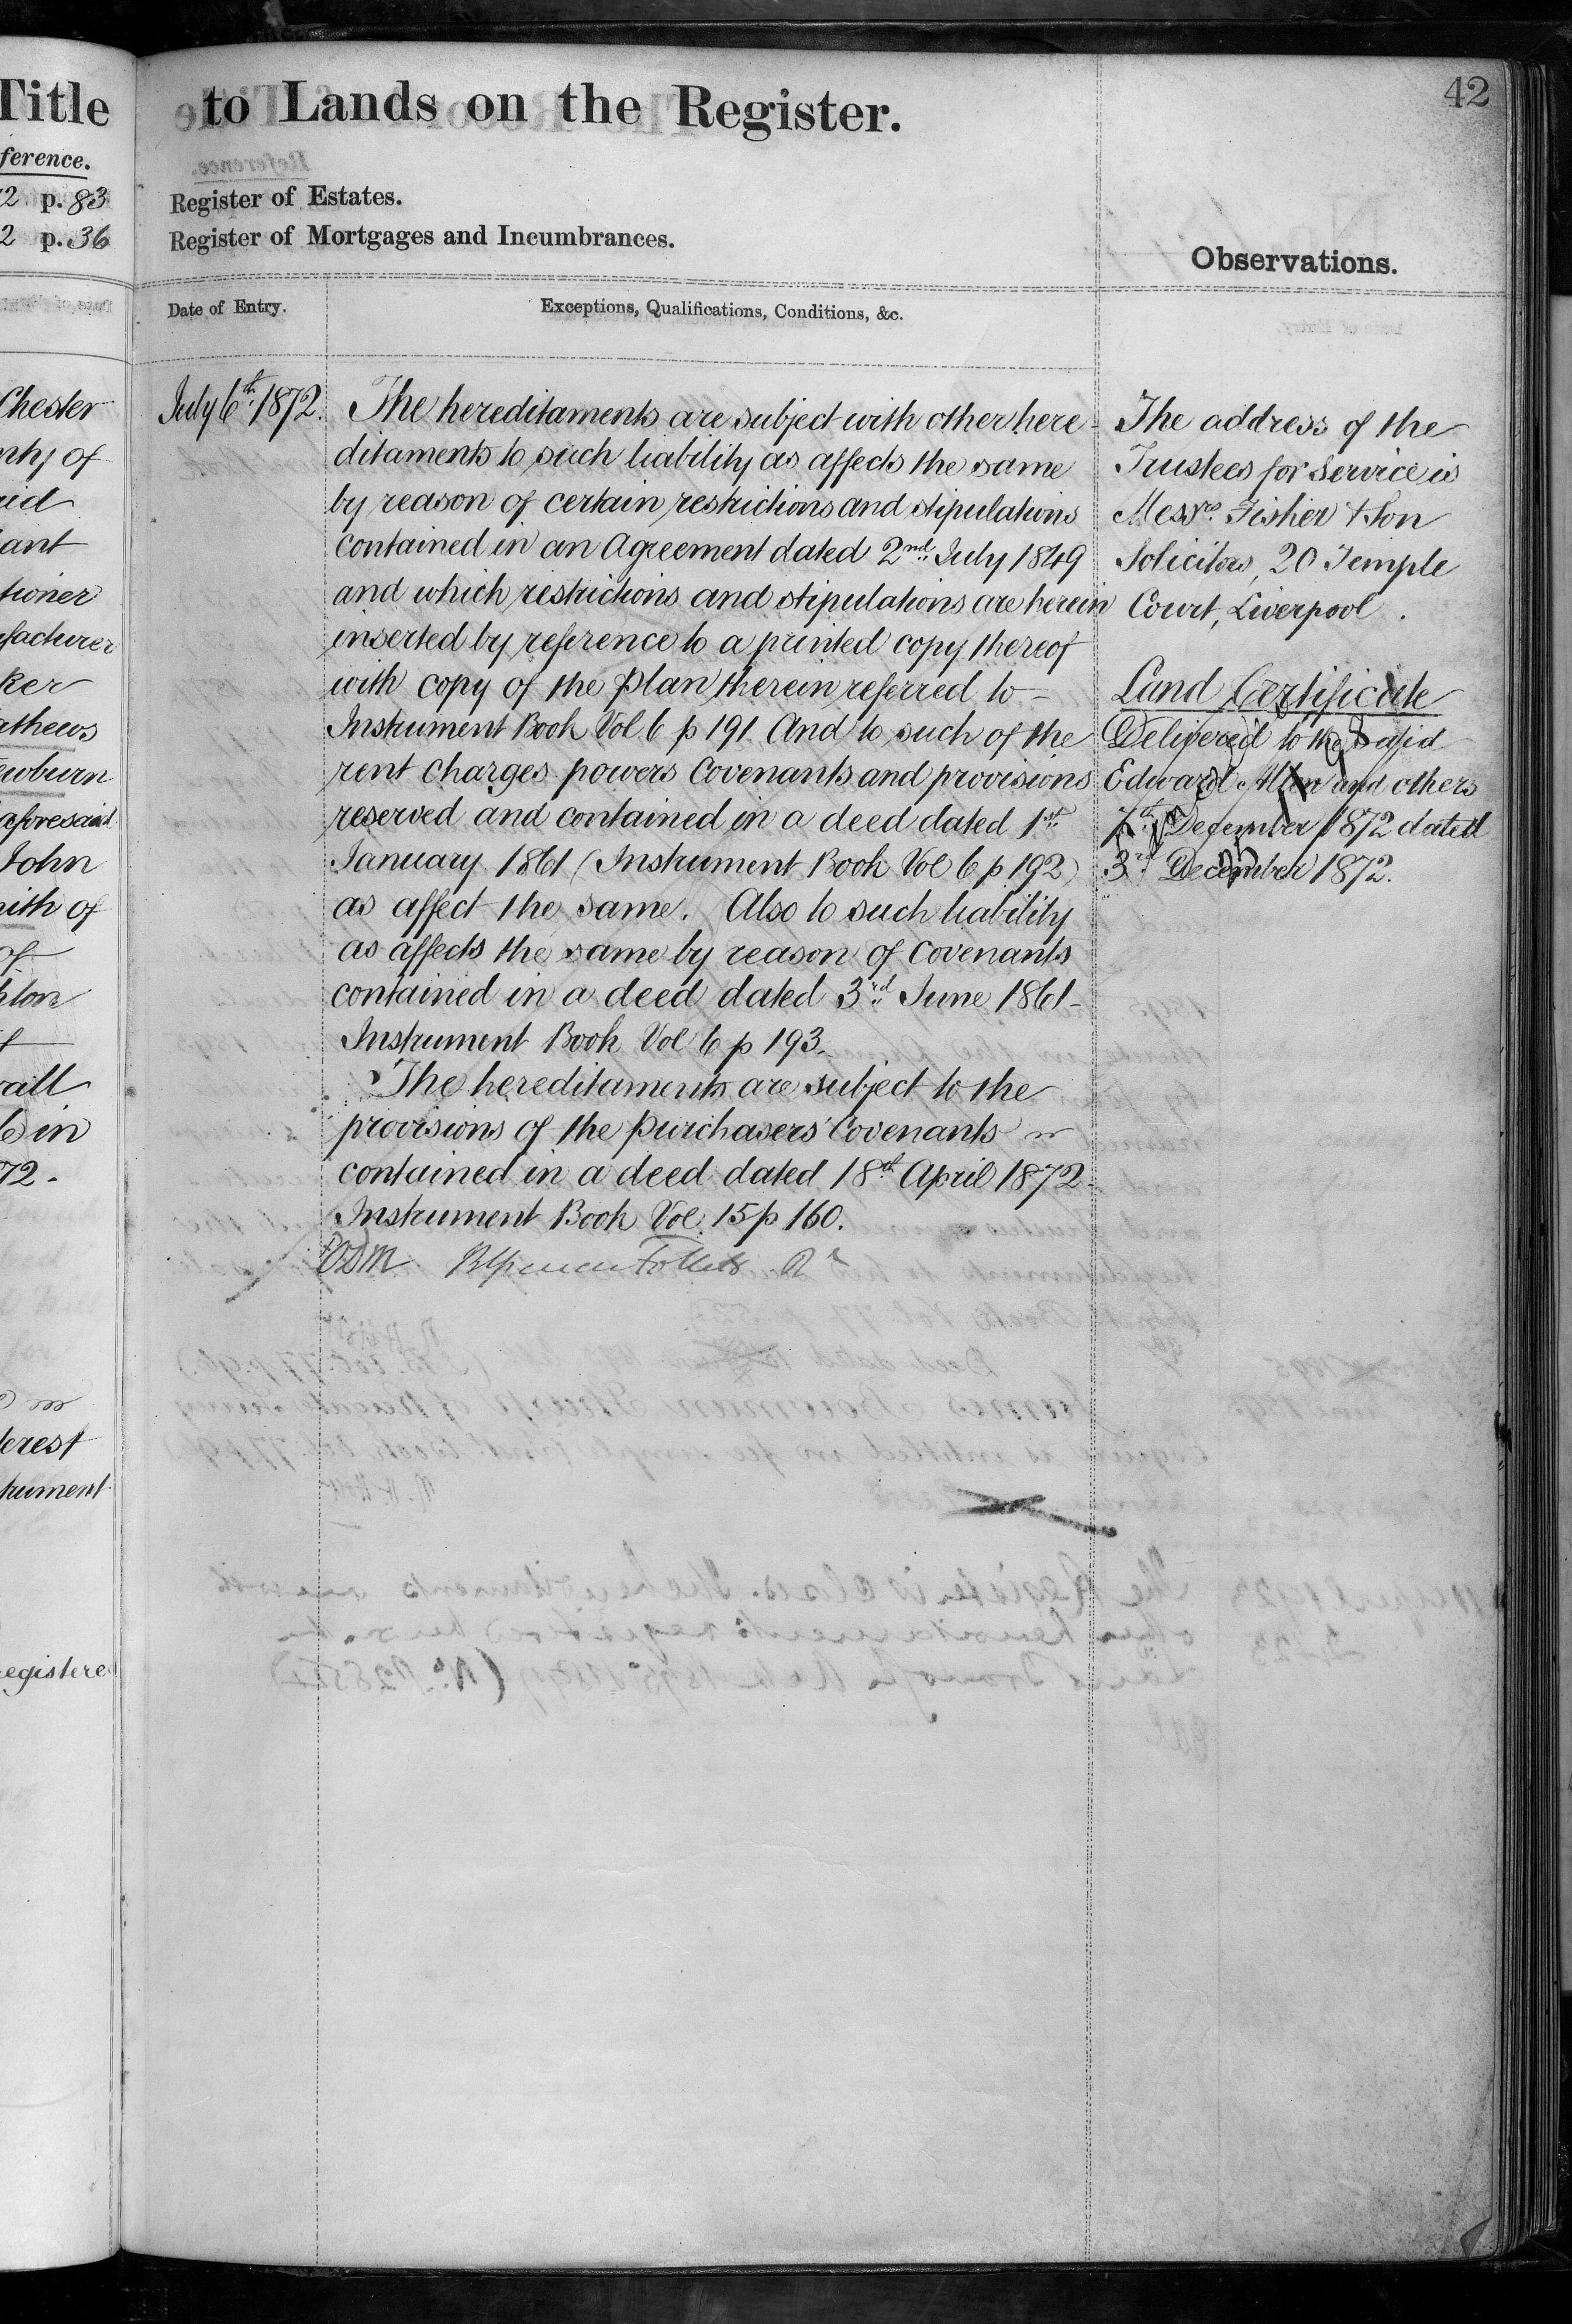 Title
ference.
2 p. 83
2 p. 36
Chester
nty of
aid
ant
tioner
ufacturer
ker
athews
ewburn
aforesaid
John
with of
of
hton
f
all
in
72.
erest
trument
registere
42
to Lands on the Register.
Register of Estates.
Register of Mortgages and Incumbrances.
Date of Entry.
Exceptions, Qualifications, Conditions, &c.
July 6th 1872.
The hereditaments are subject with other here-
ditaments to such liability as affects the same
by reason of certain restrictions and stipulations
contained in an Agreement dated 2nd July 1849
and which restrictions and stipulations are herein
inserted by reference to a printed copy thereof
with copy of the plan therein referred to -
Instrument Book Vol 6 p 191. And to such of the
rent charges powers covenants and provisions
reserved and contained in a deed dated 1st
January 1861 (Instrument Book Vol 6 p 192)
as affect the same. Also to such liability
as affects the same by reason of covenants
contained in a deed dated 3rd June 1861 -
Instrument Book Vol 6 p 193.
The hereditaments are subject to the
provisions of the purchasers' Covenants
contained in a deed dated 18th April 1872 -
Instrument Book Vol. 15 p 160.
Observations.
The address of the
Trustees for service is
Messrs. Fisher & Son
Solicitors, 20 Temple
Court, Liverpool.
Land Certificate
Delivered to the said
Edward Allen and others
7th December 1872 dated
3rd December 1872.